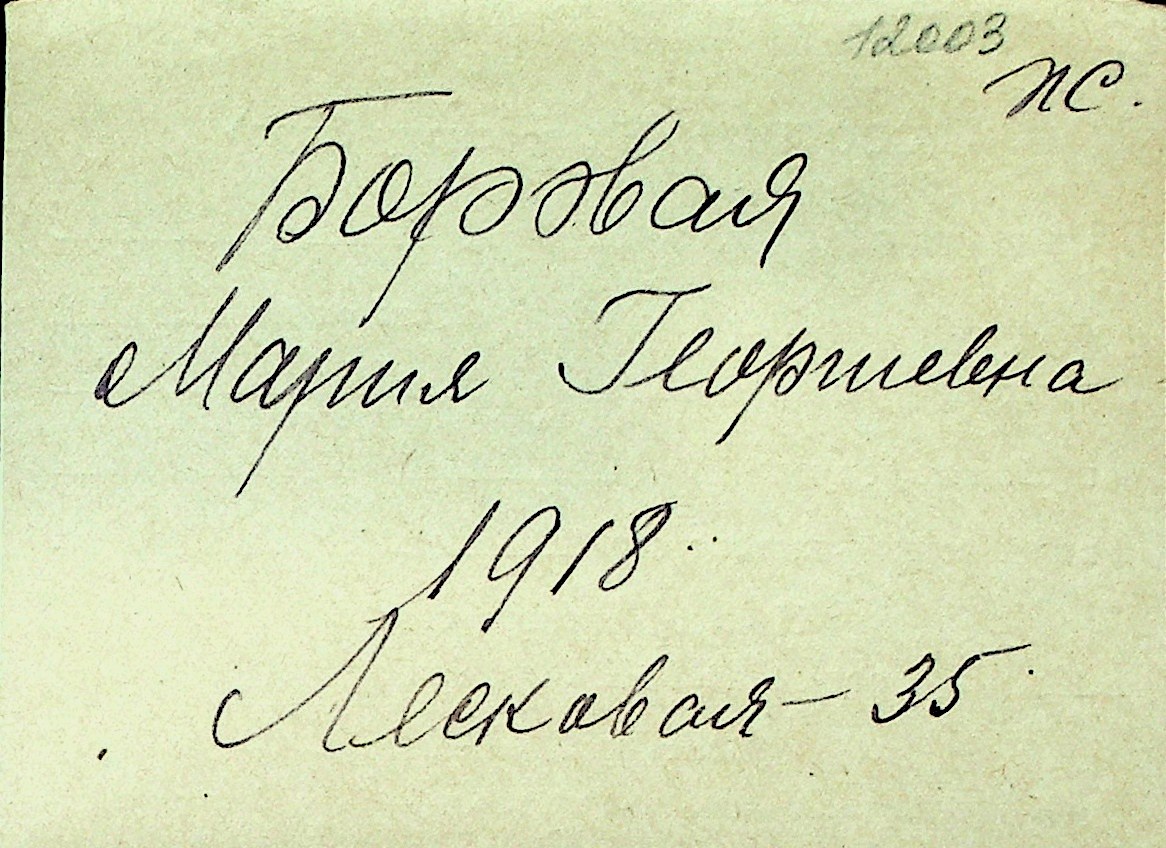 12003
ПС.
Боровая
Мария Георгиевна
1918
Лесковая - 35